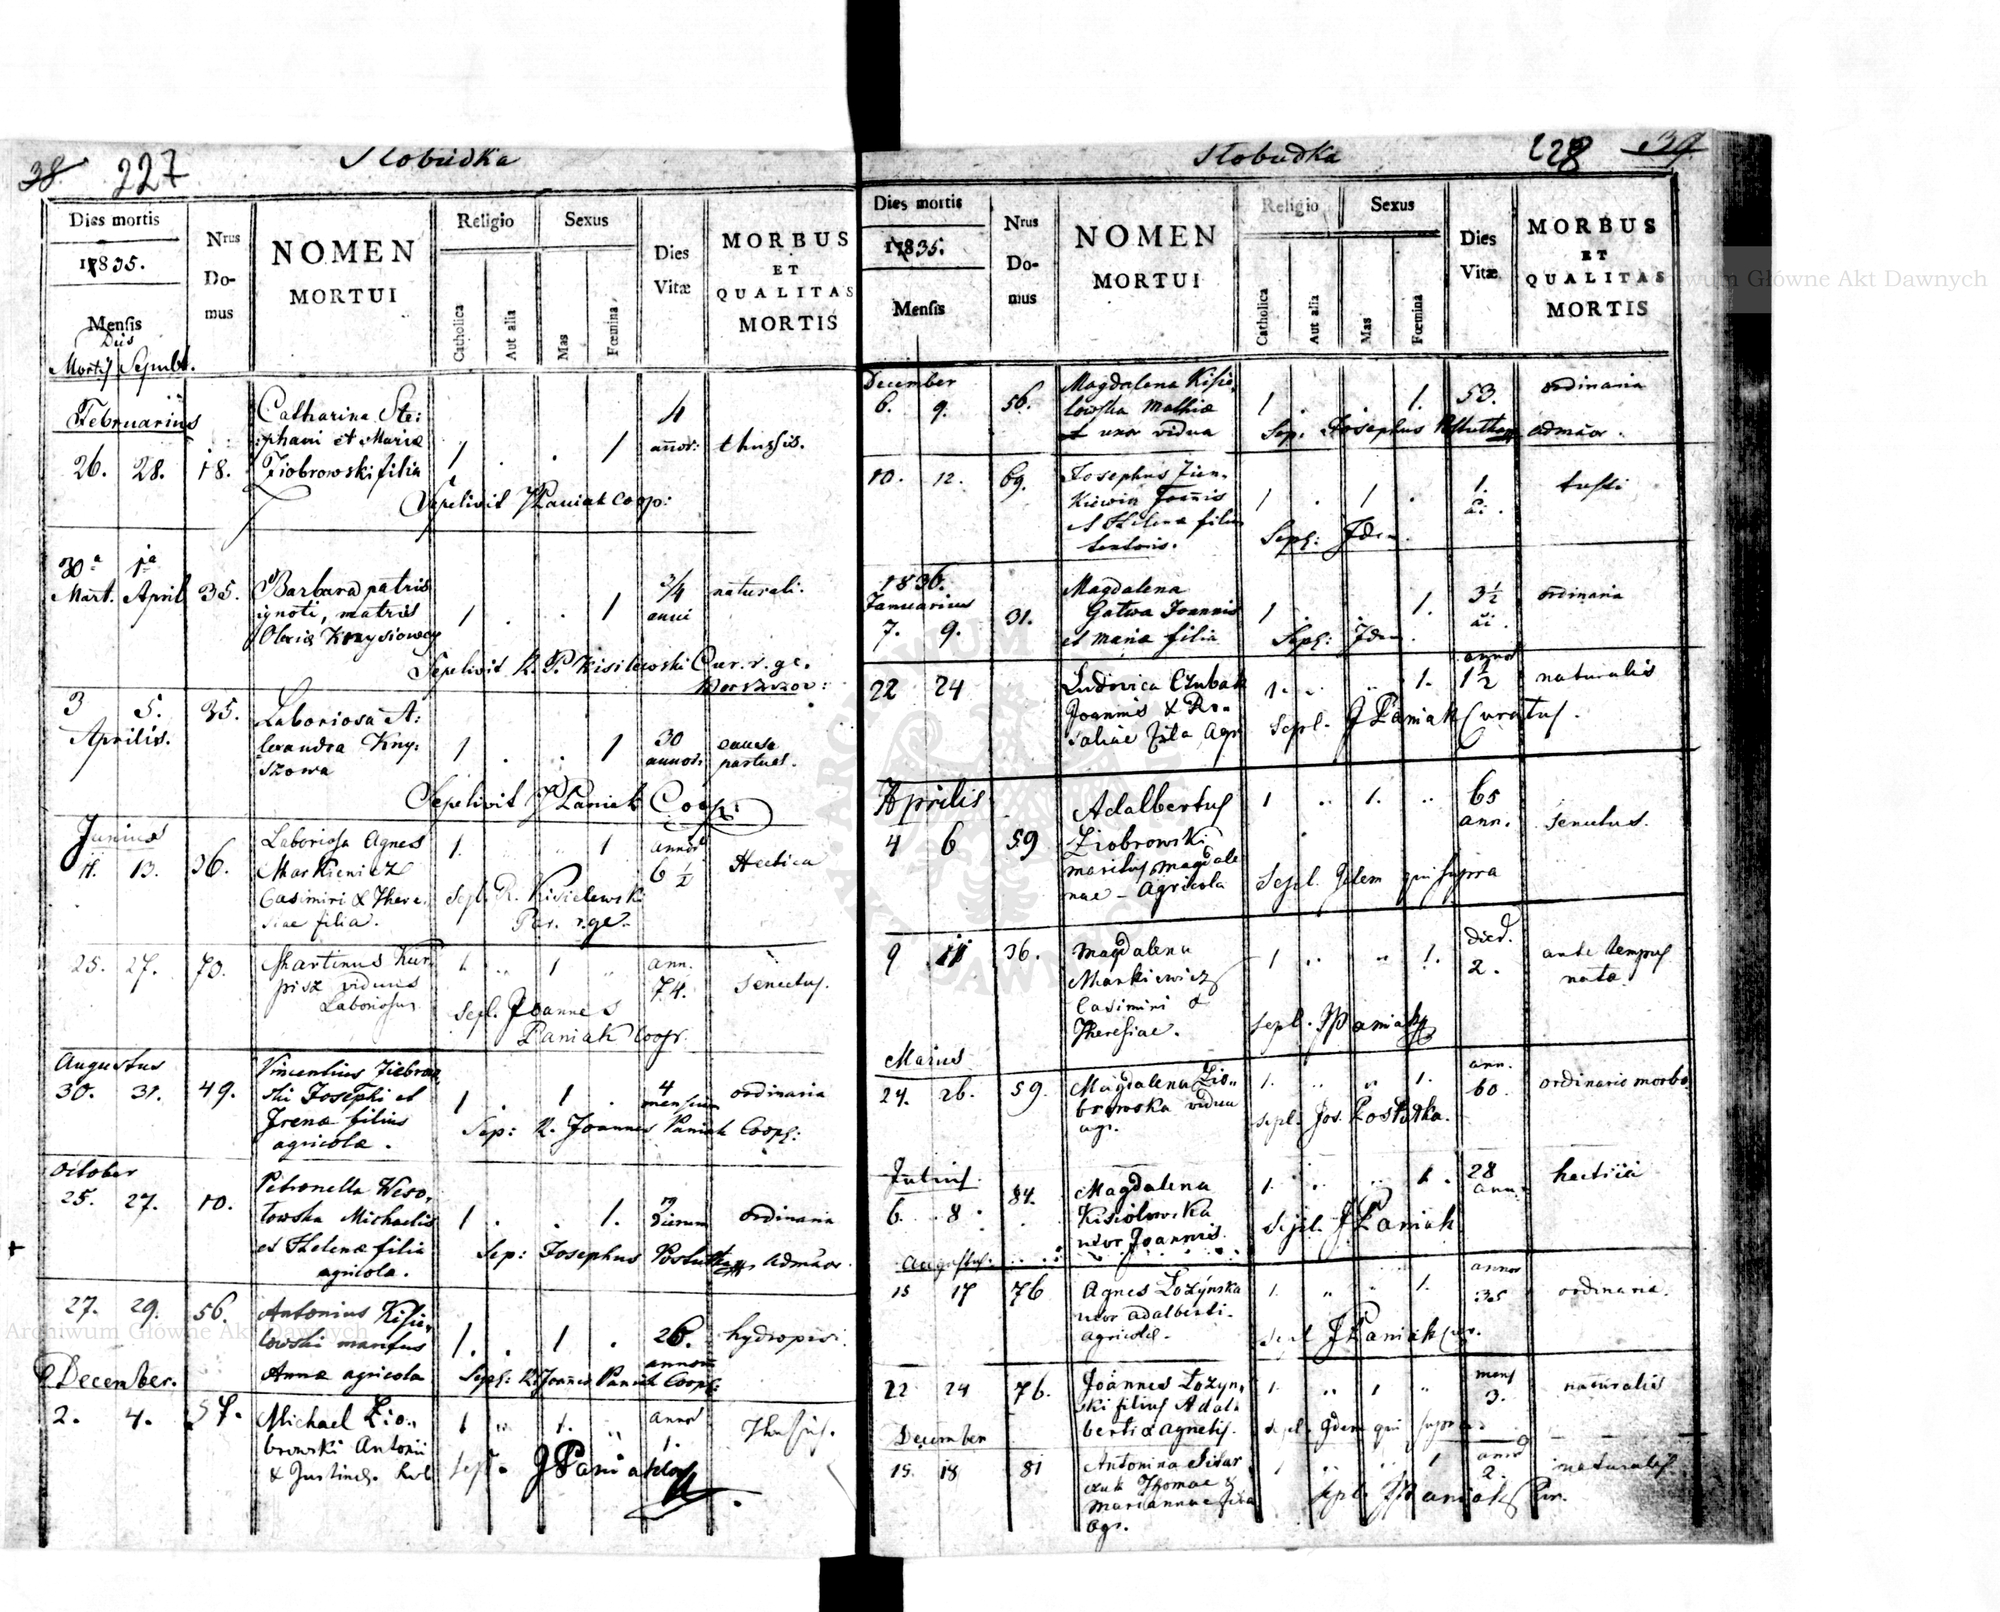 38. 227 Slobudka
Dies mortis
1835.
Mensis
Dies
Mortis Sepult.
Nrus Do- mus
NOMEN
MORTUI
Religio
Catholica
Aut alia
Sexus
Mas
Fœmina
Dies
Vitæ
MORBUS
ET
QUALITAS
MORTIS
Februarius
26. 28. 18.
Catharina Ste:
:phani et Mariæ
Ziobrowski filia
1 . . 1
4
annor:
thussis.
Sepelivit JPaniak Coop:
30a 1a
Mart. April 35.
Barbara patris
ignoti, matris
1 . . 1
3/4
anni
naturali.
Sepelivit R. P. Kisilewski Cur. r. gc.
3 5. 35.
Aprilis.
Laboriosa A:
lexandra Kny:
szowa
1 . . 1
30
annor:
causa
partus.
Sepelivit JPaniak Coop:
Junius
11. 13. 36.
Laboriosa Agnes
Markiewicz
Casimiri & There
siae filia.
1. 1
annor
6 1/2
Hectica
Sepl. R. Kisielewski
Par. r. gc.
25. 27. 70.
Martinus Kur
pisz viduus
Laboriosus
1. „ 1 „
ann.
74.
Senectus.
Sepl. Joannes
Paniak Coopr.
Augustus
30. 31. 49.
Vincentius Ziobrow
ski Josephi et
Irenæ filius
agricolæ.
1 . 1 .
4
mensium
ordinaria
Sep: R. Joannes Paniak Coop:
October
25. 27. 10.
Petronella Weso,
lowska Michaelis
et Helenæ filia
agricola.
1 . . 1.
dierum
ordinaria
Sep: Josephus Admãor.
27. 29. 56.
Antonius Kisie,
lowski maritus
Annæ agricola
1. . 1 .
26.
annor
hydropisi.
Sepl: R. Joannes Paniak Coop:
December.
2. 4. 57.
Michael Zio„
browski Antonii
& Justinæ.
1 „ 1. „
annor
1.
Thussis.
Sepl. JPaniak
Slobudka 228 39.
Dies mortis
1835.
Mensis
Nrus Do- mus
NOMEN
MORTUI
Religio
Catholica
Aut alia
Sexus
Mas
Fœmina
Dies
Vitæ
MORBUS
ET
QUALITAS
MORTIS
December
6. 9. 56.
Magdalena Kisie,
lowska Mathiæ
uxor vidua
1 1.
53.
ordinaria
Sep: Josephus Admãor.
10. 12. 69.
Josephus Zien,
kiewicz Joannis
et Helenæ filius
1 . 1 .
1.
ãi.
tussi
Sepl: Idem.
1836.
Januarius
7. 9. 31.
Magdalena
Gatwa Joannis
et Maria filia
1 . . 1.
3 1/2
ãi.
ordinaria
Sepl: Idem.
22 24
Ludovica Czubak
Joannis & Ro-
saliae filia Agr
1. „ „ 1.
annor
1 1/2
naturalis
Sepl. JPaniak Curatus.
Aprilis
4 6 59
Adalbertus
Ziobrowski
maritus Magdale
nae - Agricola
1 „ 1. „
65
ann.
Senectus.
Sepel. Idem qui supra
9 11 36.
Magdalena
Markiewicz
Casimiri &
Theresiae.
1 „ „ 1.
dier.
2.
ante tempus
nata.
Sepl. JPaniak
Maius
24. 26. 59.
Magdalena Zio„
browska vidua
agr.
1. „ „ 1.
ann.
60.
ordinario morbo.
Sepl. Jos.
Julius.
6. 8. 84.
Magdalena
Kisiolewska
uxor Joannis.
1. „ „ 1.
28
ann.
hectica
Sepl. JPaniak
Augustus.
15 17 76
Agnes Lozynska
uxor Adalberti
agricolæ.
1. „ „ 1.
annor
35
ordinaria.
Sepl JPaniak Cur.
22 24 76.
Joannes Lozyn,
ski filius Adal,
berti & Agnetis.
1. „ 1 „
mens
3.
naturalis
Sepl. Idem qui supra
December
15. 18 81
Antonina Sitar
czuk Thomae &
Mariannae filia
Agr.
1 „ „ 1
annor
2.
naturalis.
Sepl. JPaniak Cur.
Archiwum Główne Akt Dawnych
Archiwum Główne Akt Dawnych
ARCHIWUM
AKT DAWNYCH